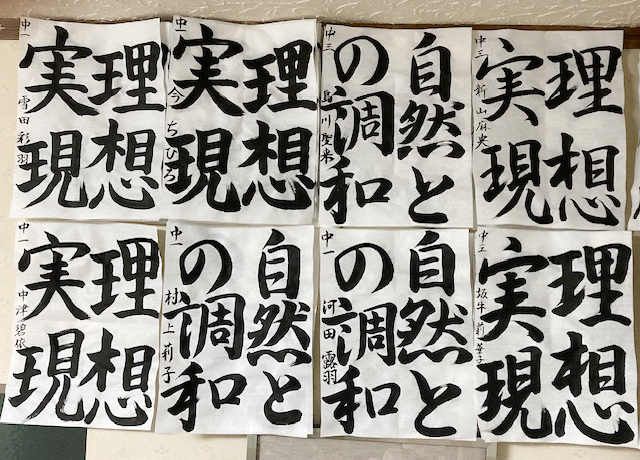 理想
実現
中一 雪田彩羽
理想
実現
中一 今ちひろ
自然と
の調和
中三 島川聖来
理想
実現
中三 新山麻央
理想
実現
中一 中津碧依
自然と
の調和
中一 村上莉子
自然と
の調和
中一 河田露羽
理想
実現
中三 坂牛莉